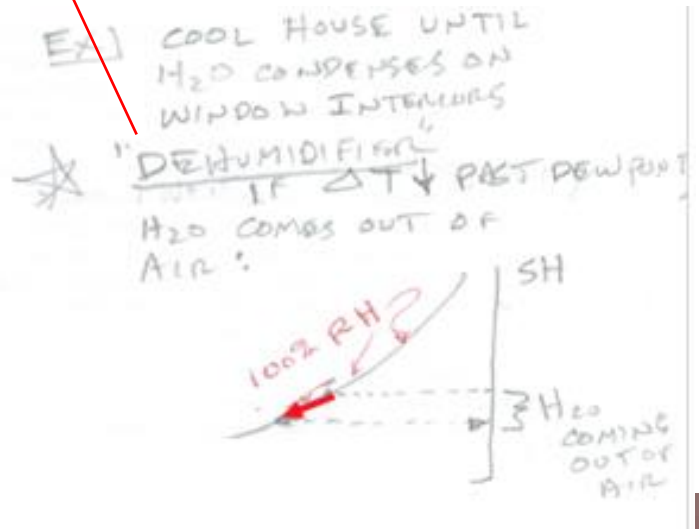 Ex] COOL HOUSE UNTIL
H2O CONDENSES ON
WINDOW INTERIORS
"DEHUMIDIFIER"
IF ΔT ↓ PAST DEWPOINT
H2O COMES OUT OF
AIR:
SH
100% RH
H2O
COMING
OUT OF
AIR